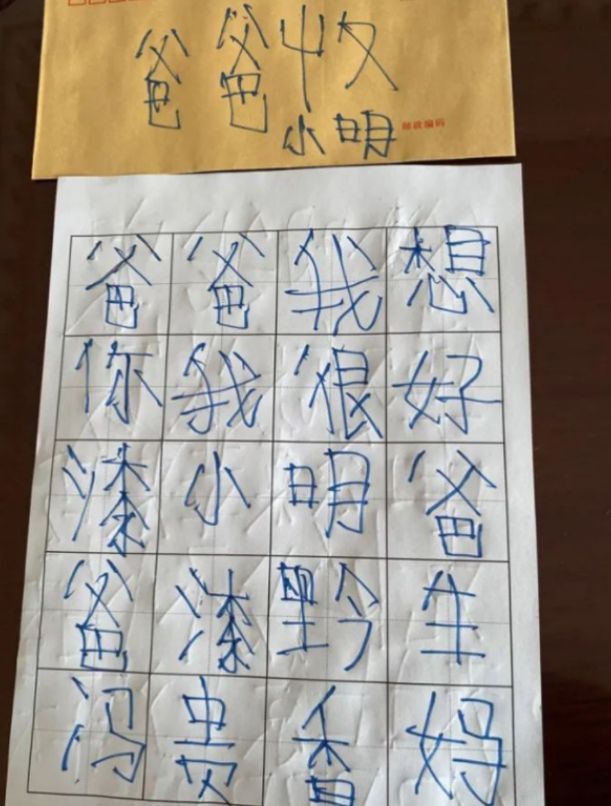 爸爸收
小明
邮政编码
爸爸我想
你我很好
漆小明爸
爸漆黔生
冯贵香妈